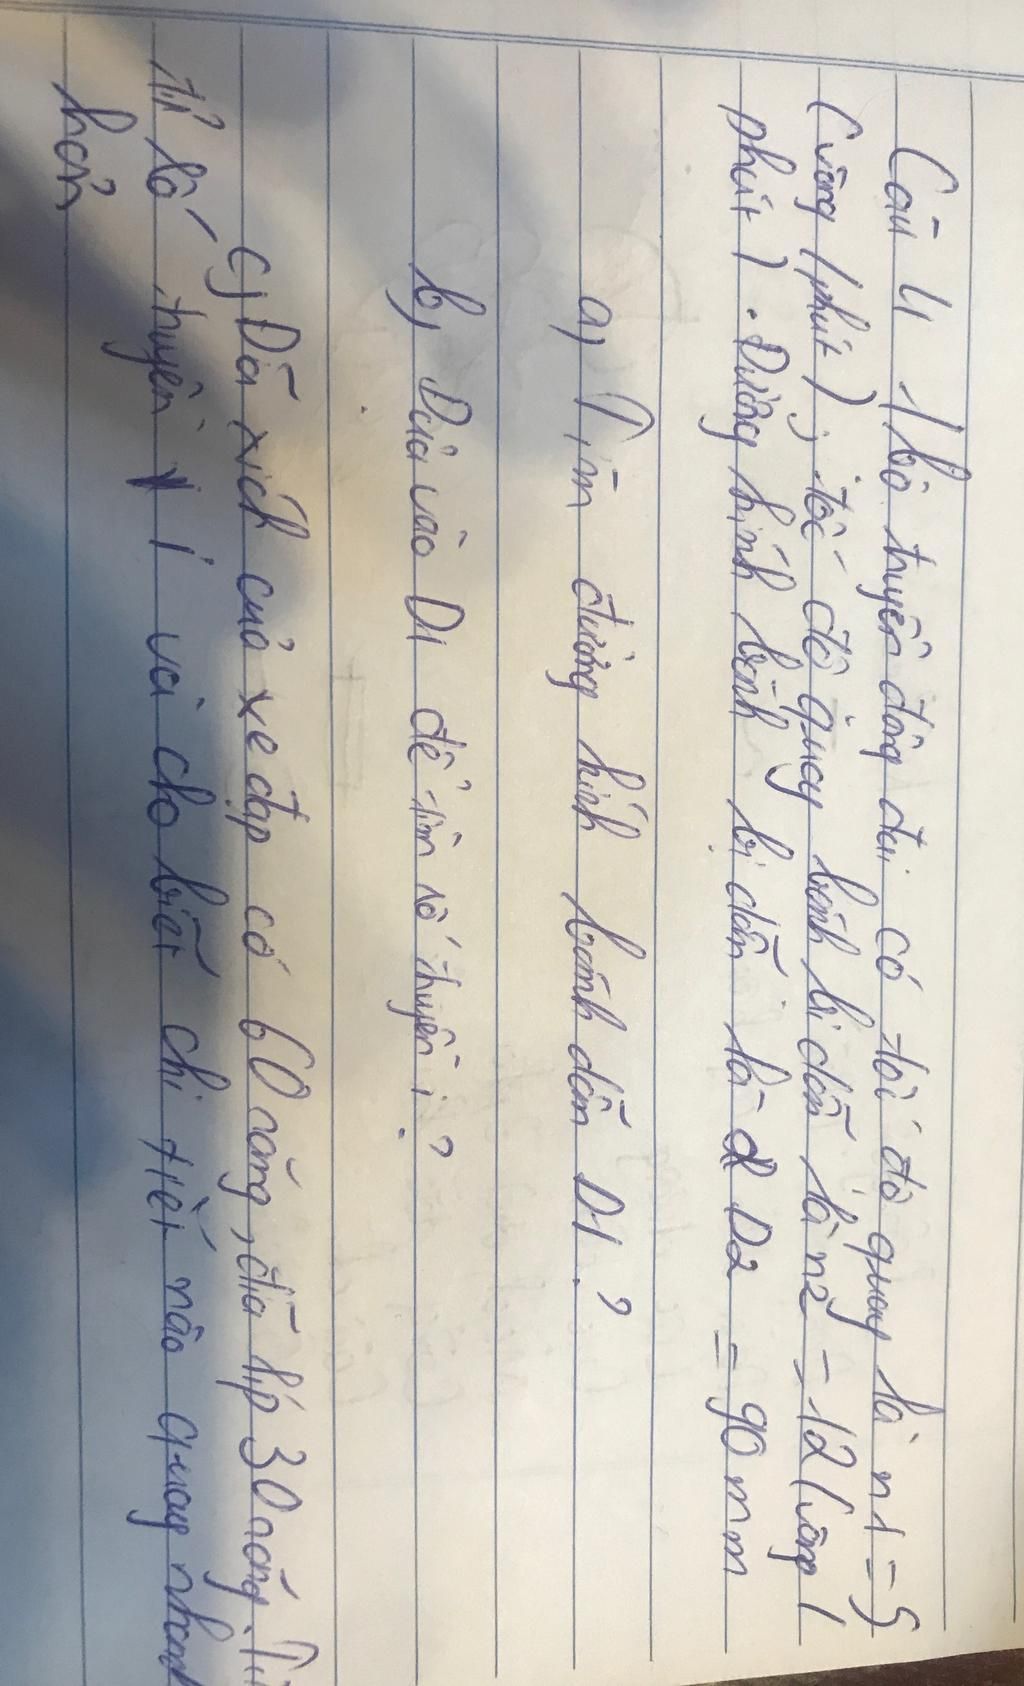 Câu 4, 1 bộ truyền động đai có tốc độ quay là n1 = 5
(vòng / phút), tốc độ quay bánh bị dẫn là n2 = 12 (vòng /
phút). Đường kính bánh bị dẫn là D2 = 90 mm
a, Tìm đường kính bánh dẫn D1?
b, Dựa vào D1 để tìm số truyền i?
c, Dĩa xích của xe đạp có 60 răng, đĩa líp 30 răng.
tỉ số truyền i và cho biết chi tiết nào quay nhanh
hơn